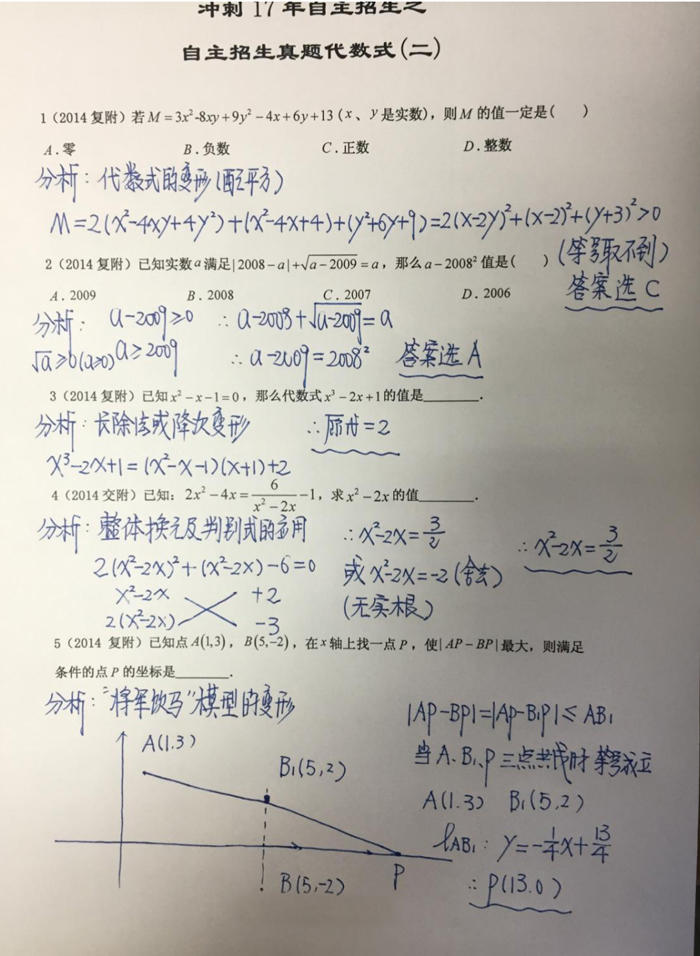 冲刺 17 年自主招生之
自主招生真题代数式(二)
1(2014 复附)若 M=3x²-8xy+9y²-4x+6y+13 (x、y 是实数), 则 M 的值一定是( )
A.零 B.负数 C.正数 D.整数
分析: 代数式的变形(配平方)
M=2(x²-4xy+4y²)+(x²-4x+4)+(y²+6y+9)=2(x-2y)²+(x-2)²+(y+3)²>0
(等号取不到)
2(2014 复附)已知实数 a 满足 |2008-a|+√(a-2009)=a, 那么 a-2008² 值是( )
答案选 C
A.2009 B.2008 C.2007 D.2006
分析: a-2009≥0 ∴ a-2008+√(a-2009)=a
√a≥0(a≥0) a≥2009 ∴ a-2009=2008² 答案选 A
3(2014 复附)已知 x²-x-1=0, 那么代数式 x³-2x+1 的值是________.
分析: 长除法或降次变形 ∴原式=2
x³-2x+1=(x²-x-1)(x+1)+2
4(2014 交附)已知: 2x²-4x=6/(x²-2x)-1, 求 x²-2x 的值________.
分析: 整体换元及判别式的应用 ∴x²-2x=3/2 ∴x²-2x=3/2
2(x²-2x)²+(x²-2x)-6=0 或 x²-2x=-2(舍去)
x²-2x +2 (无实根)
2(x²-2x) -3
5(2014 复附)已知点 A(1,3), B(5,-2), 在 x 轴上找一点 P, 使|AP-BP|最大, 则满足
条件的点 P 的坐标是________.
分析: "将军饮马"模型的变形
|AP-BP|=|AP-B₁P|≤AB₁
A(1.3)
当 A、B₁、P 三点共线时 等号成立
B₁(5,2)
A(1.3) B₁(5,2)
l_AB₁: y=-1/4x+13/4
P
B(5,-2)
∴P(13.0)